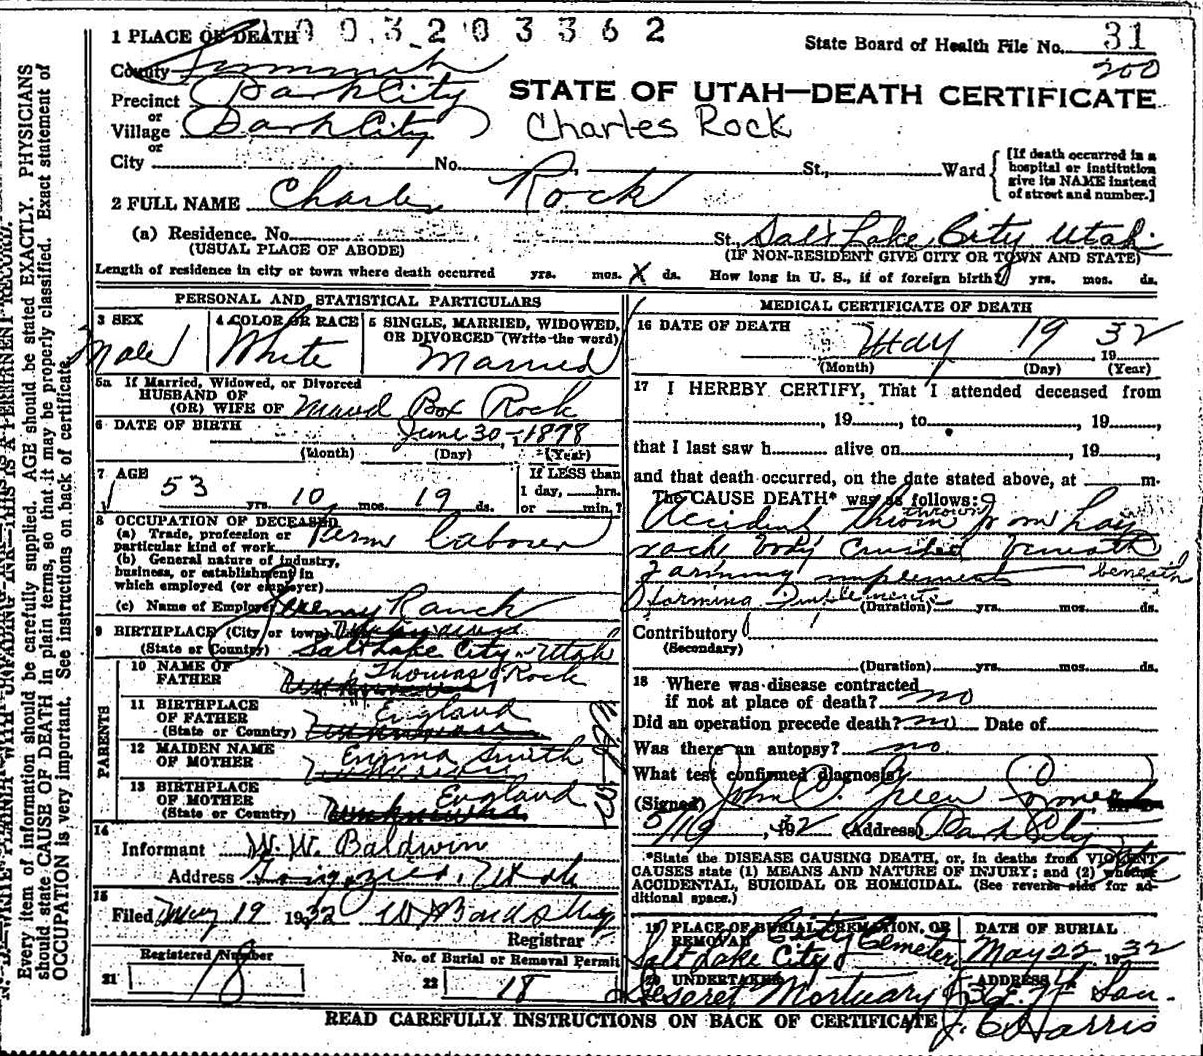 1 PLACE OF DEATH 0 0 3 2 0 3 3 6 2
State Board of Health File No. 31
200
County Summit
STATE OF UTAH—DEATH CERTIFICATE
Precinct Park City
or
Village Park City
Charles Rock
or
City No. St., Ward
[If death occurred in a hospital or institution give its NAME instead of street and number.]
2 FULL NAME Charles Rock
(a) Residence. No. St., Salt Lake City Utah
(USUAL PLACE OF ABODE) (IF NON-RESIDENT GIVE CITY OR TOWN AND STATE)
Length of residence in city or town where death occurred yrs. mos. X ds. How long in U. S., if of foreign birth? yrs. mos. ds.
PERSONAL AND STATISTICAL PARTICULARS
3 SEX 4 COLOR OR RACE 5 SINGLE, MARRIED, WIDOWED, OR DIVORCED (Write the word)
Male White Married
5a If Married, Widowed, or Divorced
HUSBAND OF
(OR) WIFE OF Maud Box Rock
6 DATE OF BIRTH June 30 - 1878
(Month) (Day) (Year)
7 AGE If LESS than
53 yrs. 10 mos. 19 ds. 1 day, hrs.
or min.?
8 OCCUPATION OF DECEASED
(a) Trade, profession or
particular kind of work Laborer
(b) General nature of industry,
business, or establishment in
which employed (or employer)
(c) Name of Employer Jeremy Ranch
9 BIRTHPLACE (City or town)
(State or Country) Salt Lake City - Utah
PARENTS
10 NAME OF
FATHER Thomas Rock
11 BIRTHPLACE
OF FATHER England
(State or Country)
12 MAIDEN NAME
OF MOTHER Emma Smith
13 BIRTHPLACE
OF MOTHER England
(State or Country)
14
Informant W. W. Baldwin
Address Utah
15
Filed May 19 1932
Registrar
Registered Number No. of Burial or Removal Permit
21 18 22 18
MEDICAL CERTIFICATE OF DEATH
16 DATE OF DEATH May 19 1932
(Month) (Day) (Year)
17 I HEREBY CERTIFY, That I attended deceased from
, 19 , to , 19 ,
that I last saw h alive on , 19 ,
and that death occurred, on the date stated above, at m.
The CAUSE DEATH* was as follows:
thrown
Accident thrown from hay
rack body crushed beneath
farming implements beneath
farming Implements
(Duration) yrs. mos. ds.
Contributory
(Secondary)
(Duration) yrs. mos. ds.
18 Where was disease contracted
if not at place of death? no
Did an operation precede death? no Date of
Was there an autopsy? no
What test confirmed diagnosis?
(Signed) John C. Green
5/19, 1932 (Address) Park City
*State the DISEASE CAUSING DEATH, or, in deaths from VIOLENT
CAUSES state (1) MEANS AND NATURE OF INJURY; and (2) whether
ACCIDENTAL, SUICIDAL OR HOMICIDAL. (See reverse side for additional space.)
19 PLACE OF BURIAL, CREMATION, OR REMOVAL DATE OF BURIAL
City Cemetery
Salt Lake City May 22 1932
20 UNDERTAKER ADDRESS
Deseret Mortuary
J. C. Harris
READ CAREFULLY INSTRUCTIONS ON BACK OF CERTIFICATE
N. B.—WRITE PLAINLY WITH UNFADING INK—THIS IS A PERMANENT RECORD.
Every item of information should be carefully supplied. AGE should be stated EXACTLY. PHYSICIANS
should state CAUSE OF DEATH in plain terms, so that it may be properly classified. Exact statement of
OCCUPATION is very important. See instructions on back of certificate.